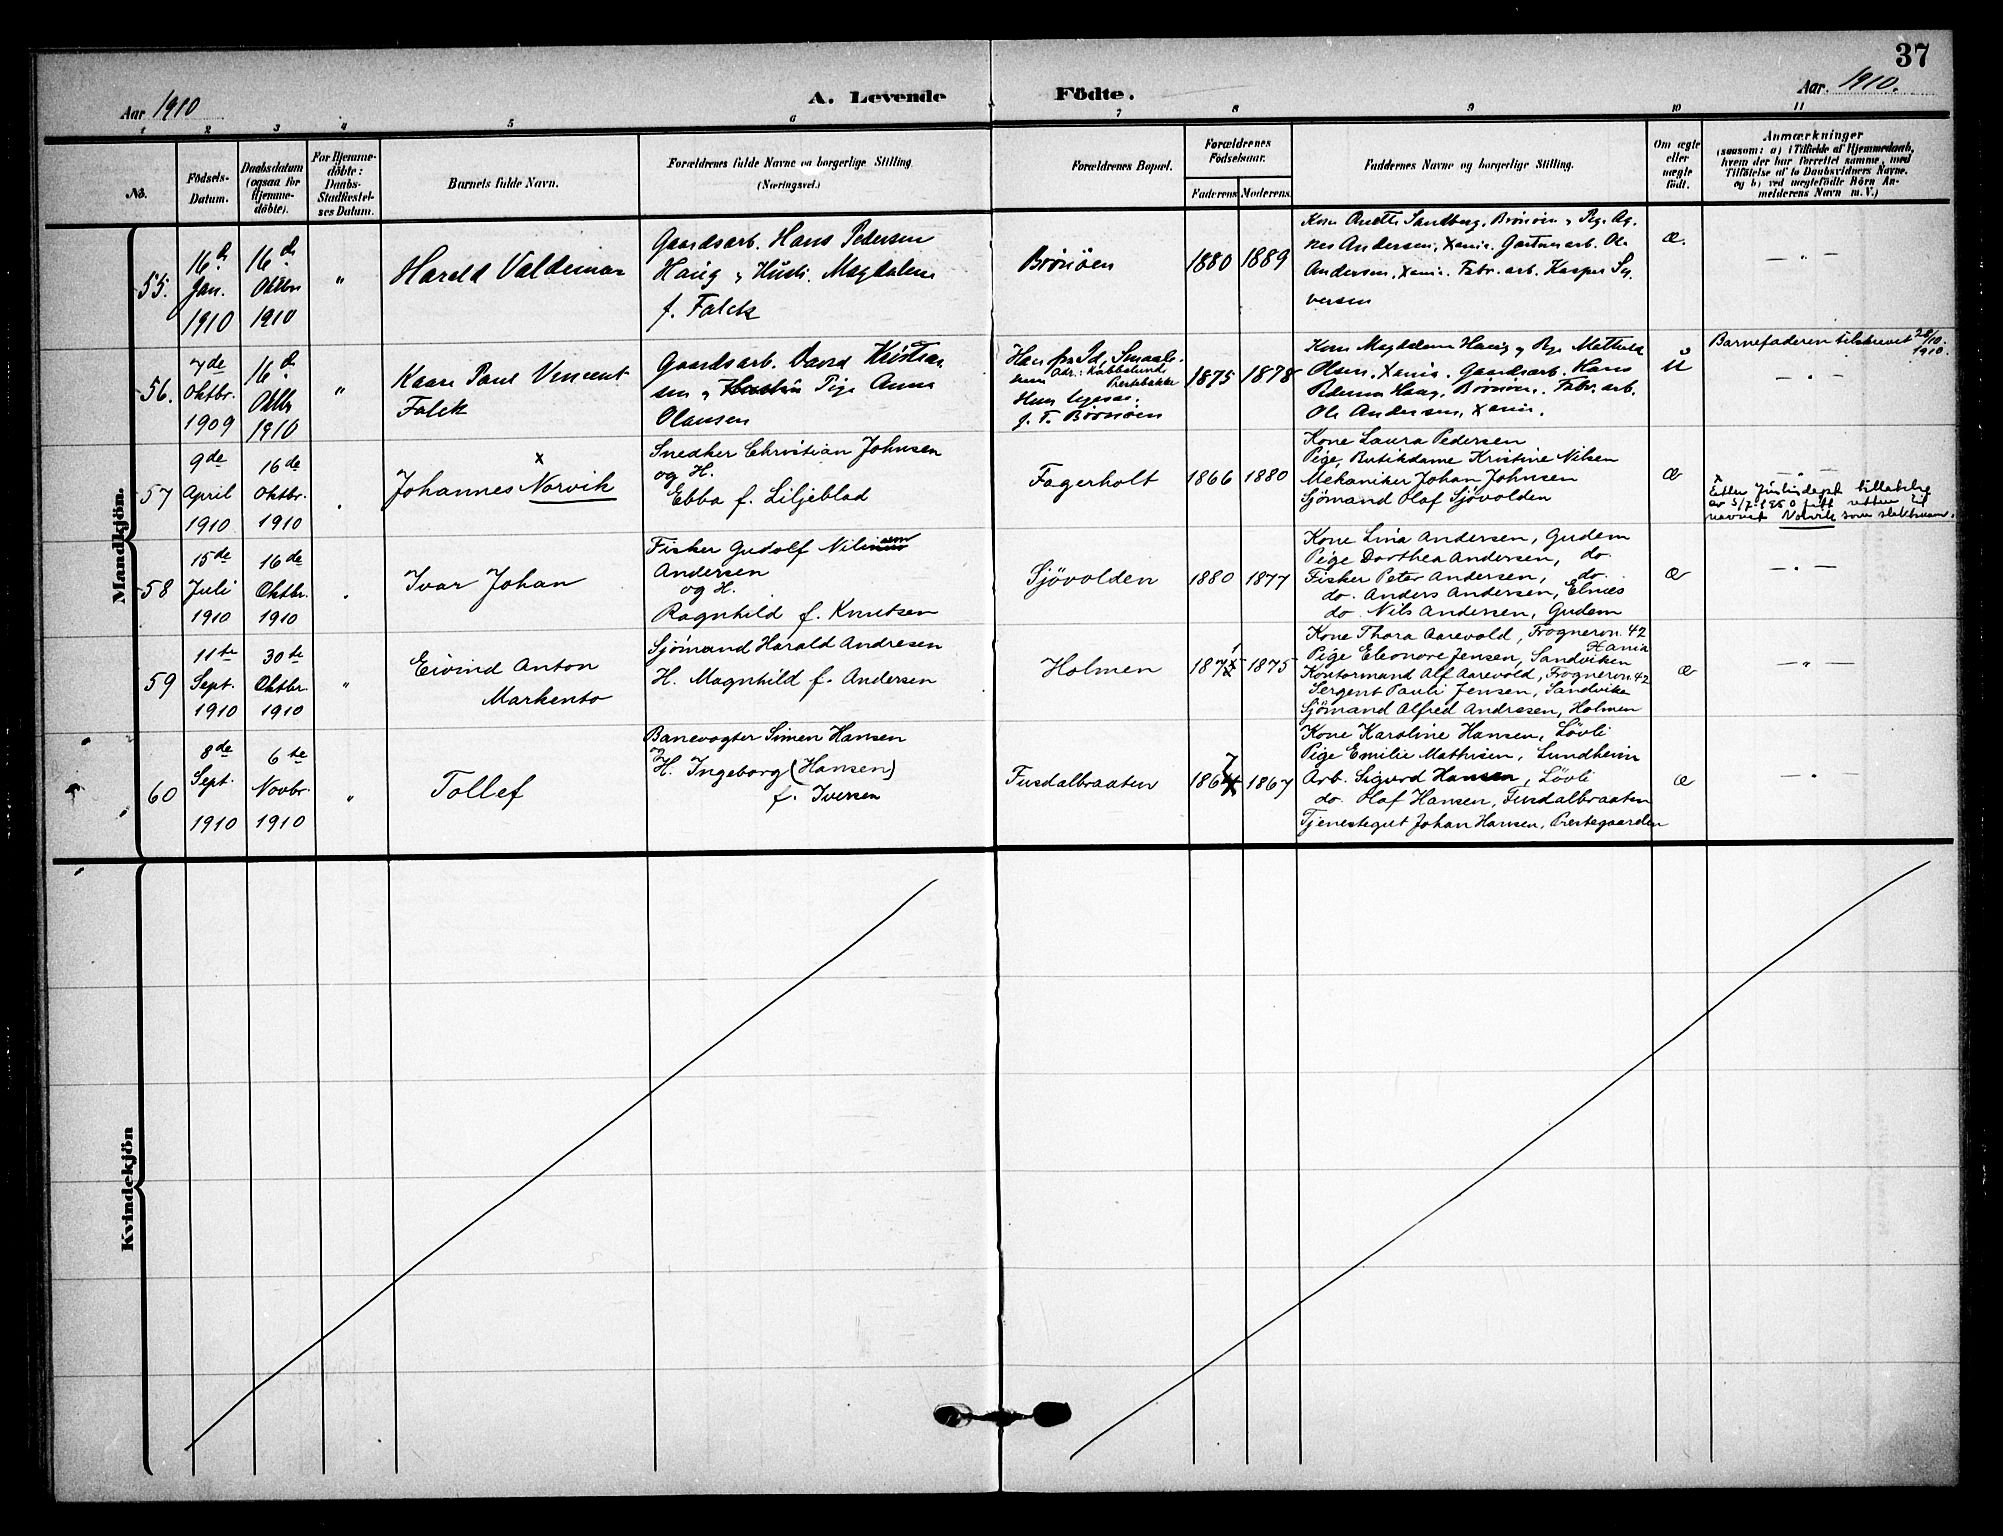 37
Aar 1910
A. Levende Födte.
Aar. 1910.
1 2 3 4 5 6 7 8 9 10 11
No.
Födsels-
Datum.
Daabsdatum
(ogsaa for
Hjemme-
döbte).
For Hjemme-
döbte:
Daabs-
Stadfæstel-
ses Datum.
Barnets fulde Navn.
Forældrenes fulde Navne og borgerlige Stilling.
(Næringsvei.)
Forældrenes Bopæl.
Forældrenes
Födselsaar.
Faderens Moderens.
Faddernes Navne og borgerlige Stilling.
Om ægte
eller
uægte
födt.
Anmærkninger
(saasom: a) i Tilfælde af Hjemmedaab,
hvem der har forrettet samme, med
Tilföielse af to Daabsvidners Navne,
og b) ved uægtefödte Börn An-
melderens Navn m. V.)
Mandkjön.
55.
16de
Jan.
1910
16de
Oktbr
1910
"
Harald Valdemar
Gaardsarb. Hans Pedersen
Haug og Hustr. Magdalene
f. Falck
Brönöen
1880 1889
Kone Anette Sandberg, Brönöen og Pige Ag-
nes Andersen, Xania. Gartnerarb. Ole
Andersen, Xania. Fabr. arb. Kasper Sy-
versen
æ.
— " —
56.
7de
Oktbr.
1909
16de
Oktbr
1910
"
Kaare Paul Vincent
Falck
Gaardsarb. David Kristian-
sen og Hustru Pige Anna
Olausen
Han fra Id, Smaal-
Adr.: Kabbelund
Berbybakke
Hun
p. T. Brönöen
1875 1878
Kone Magdalene Haug og Pige Mathilde
Olsen, Xania. Gaardsarb. Hans
Pedersen Haug, Brönöen. Fabr. arb.
Ole Andersen, Xania.
U
Barnefaderen tilskrevet 28/10.
1910.
— " —
57
9de
April
1910
16de
Oktbr.
1910
"
x
Johannes Norvik
Snedker Christian Johnsen
og H.
Ebba f. Liljeblad
Fagerholt
1866 1880
Kone Laura Pedersen
Pige, Butikdame Kristine Nilsen
Mekaniker Johan Johnsen
Sjömand Olaf Sjövolden
æ
— " —
x
Etter Justisdept tillatelse
av 5/7 1950 gitt retten til
navnet Norvik som slektsnavn.
58
15de
Juli
1910
16de
Oktbr.
1910
"
Ivar Johan
Fisker Gudolf
Andersen
og H.
Ragnhild f. Knutsen
Sjövolden
1880 1877
Kone Lina Andersen, Gudem
Pige Dorthea Andersen, do.
Fisker Peter Andersen, do.
do. Anders Andersen, Elnæs
do. Nils Andersen, Gudem
æ
— " —
59
11te
Sept.
1910
30te
Oktbr.
1910
"
Eivind Anton
Markento
Sjömand Harald Andresen
H. Magnhild f. Andersen
Holmen
1871 1875
Kone Thora Aarevold, Frognerv. 42
Xania
Pige Eleonore Jensen, Sandviken
Kontormand Alf Aarevold, Frognerv. 42
Sergent Pauli Jensen, Sandvika
Sjömand Alfred Andresen, Holmen
æ
— " —
60
8de
Sept.
1910
6te
Novbr.
1910
"
Tollef
Banevogter Simen Hansen
og H. Ingeborg (Hansen)
f. Iversen
Fusdalbraaten
1867 1867
Kone Karoline Hansen, Lövli
Pige Emilie Mathisen, Lundheim
Arb. Sigurd Hansen, Lövli
do. Olaf Hansen, Fusdalbraaten
Tjenestegut Johan Hansen, Præstegaarden
æ
— " —
Kvindekjön